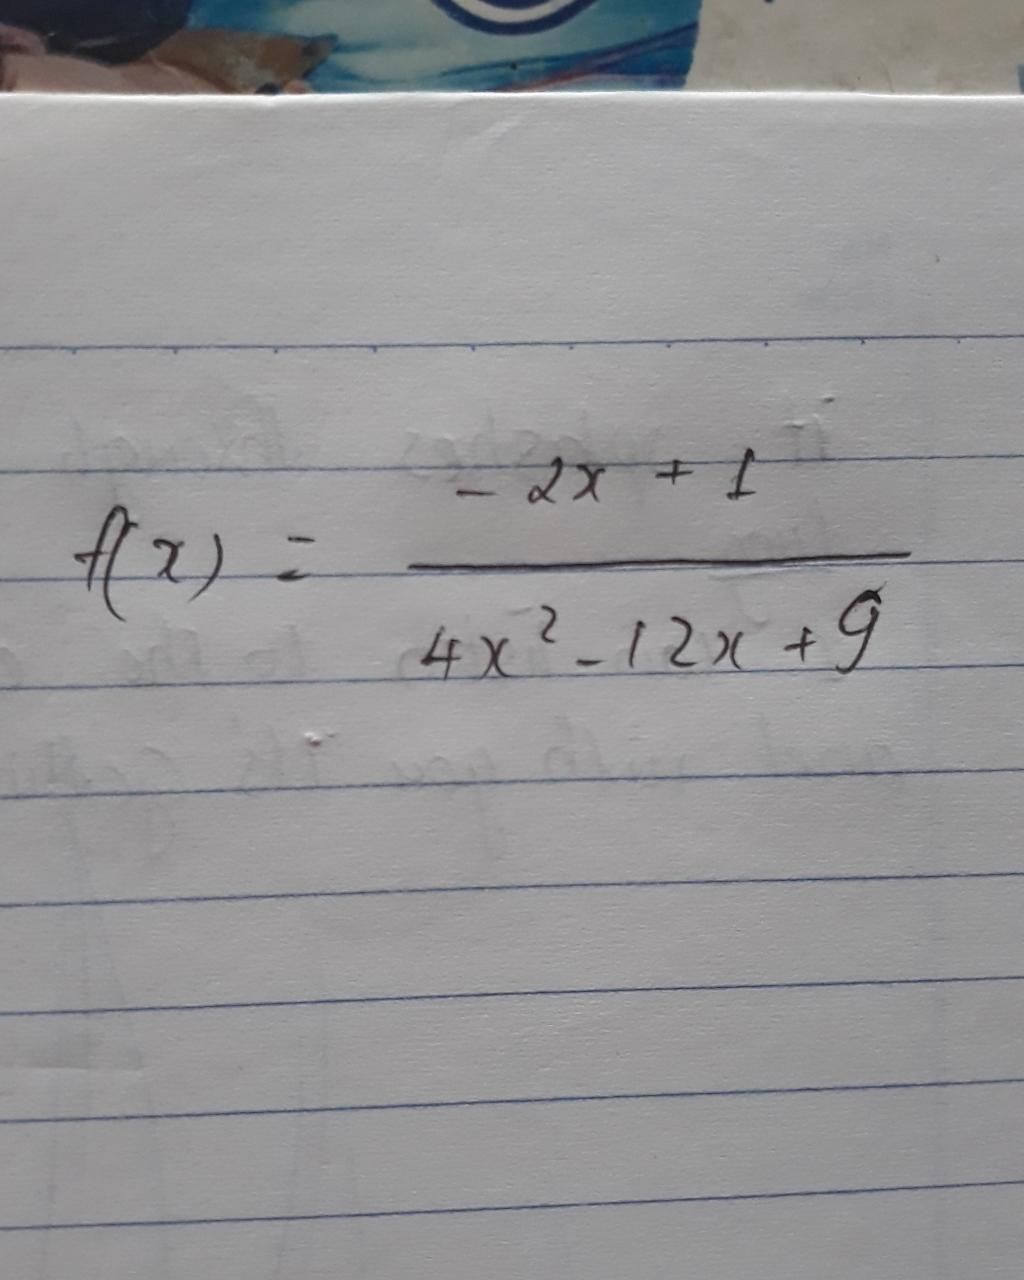 f(x) = \frac{-2x + 1}{4x^2 - 12x + 9}